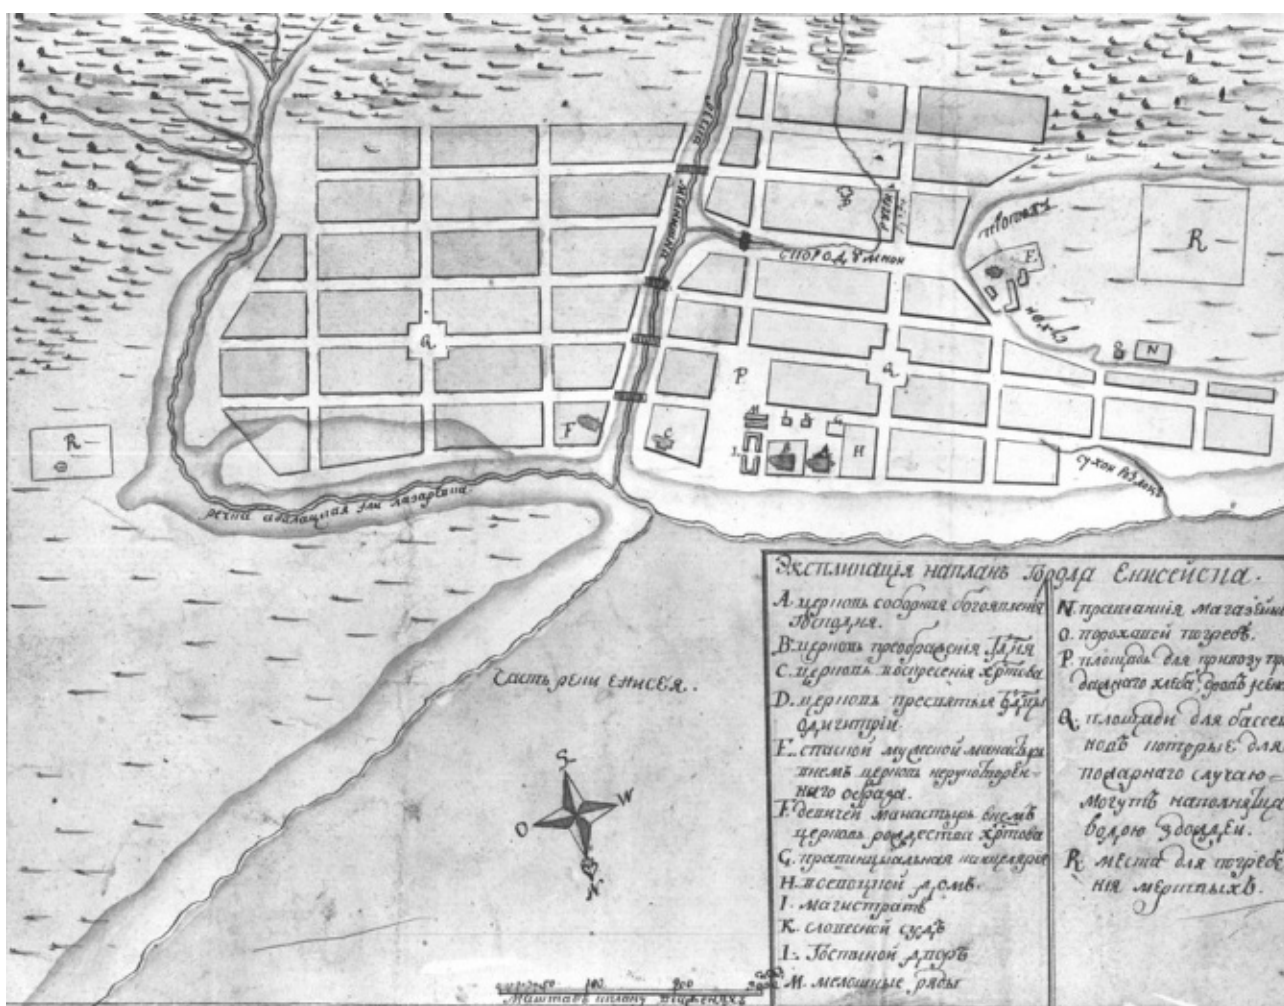 Мельнишна
ручей
R
логомъ
E
R
Q
P
Q
N
F
C
M
I
K
G
L
H
сухой
R
речка абалацкая или лазаревка
Часть реки Енисея.
S
W
O
N
Экспликацiя напланъ Города Енисейска.
А. церковь соборная богоявленiя
Господня.
В. церковь преображенiя Гдня
С. церковь воскресенiя хртова
D. церковь пресвятыя бдцы
одигитрiи.
E. спаской мужеской манастырь
внемъ церковь нерукотворен-
наго образа.
F. девичей манастырь внемъ
церковь рождества хртова
G. правинцыальная канцелярия
H. воевоцкой домъ.
I. магистратъ
K. словесной судъ
L. Гостиной дворъ
M. мелошные ряды
N. правианския магазейны
O. пороховой погребъ.
P. площадь для привозу про
дажнаго хлеба, дровъ и сена
Q. площади для бассей
новъ которые для
пожарнаго случаю
могутъ наполнятца
водою здождей.
R. места для погребе
ния мертвыхъ.
Маштабъ кплану всаженяхъ